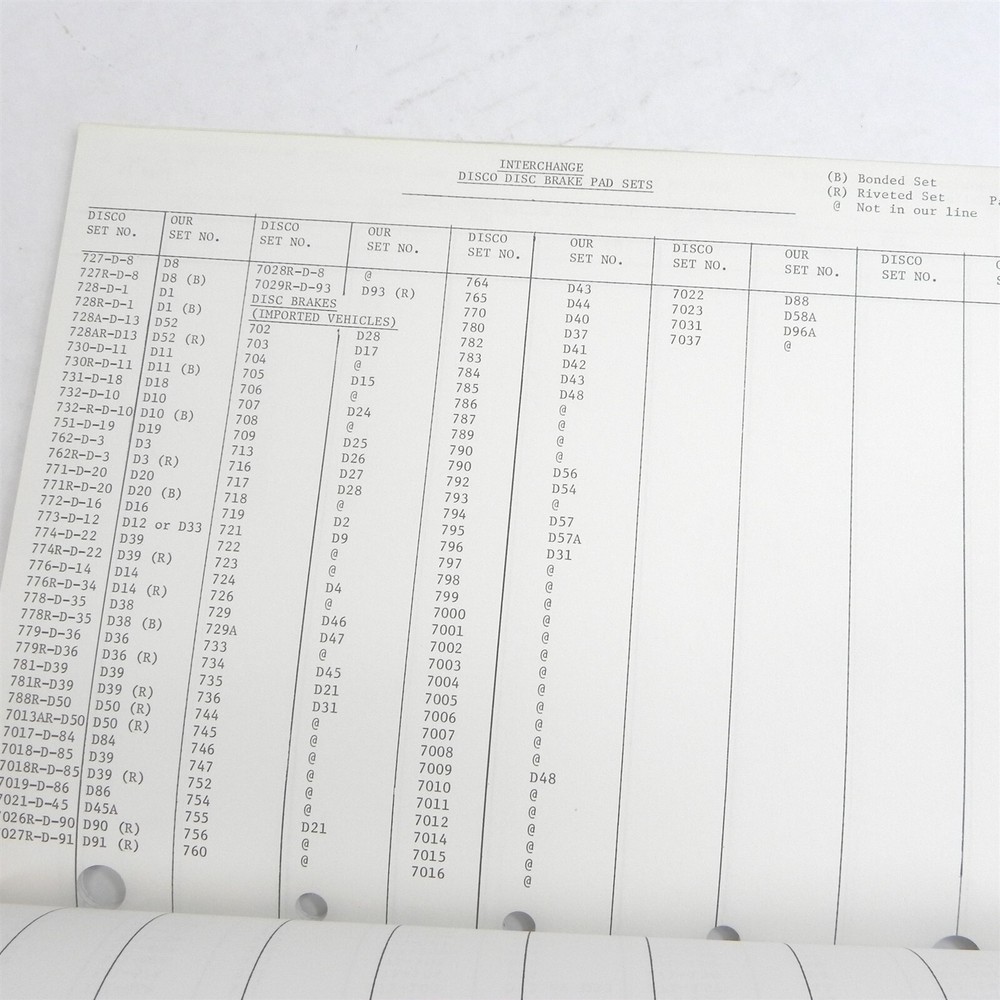 INTERCHANGE
DISCO DISC BRAKE PAD SETS
(B) Bonded Set
(R) Riveted Set
@ Not in our line
DISCO SET NO. OUR SET NO.
727-D-8 D8
727R-D-8 D8 (B)
728-D-1 D1
728R-D-1 D1 (B)
728A-D-13 D52
728AR-D13 D52 (R)
730-D-11 D11
730R-D-11 D11 (B)
731-D-18 D18
732-D-10 D10
732-R-D-10 D10 (B)
751-D-19 D19
762-D-3 D3
762R-D-3 D3 (R)
771-D-20 D20
771R-D-20 D20 (B)
772-D-16 D16
773-D-12 D12 or D33
774-D-22 D39
774R-D-22 D39 (R)
776-D-14 D14
776R-D-34 D14 (R)
778-D-35 D38
778R-D-35 D38 (B)
779-D-36 D36
779R-D-36 D36 (R)
781-D39 D39
781R-D39 D39 (R)
788R-D50 D50 (R)
7013AR-D50 D50 (R)
7017-D-84 D84
7018-D-85 D39
7018R-D-85 D39 (R)
7019-D-86 D86
7021-D-45 D45A
026R-D-90 D90 (R)
027R-D-91 D91 (R)
DISCO SET NO. OUR SET NO.
7028R-D-8 @
7029R-D-93 D93 (R)
DISC BRAKES
(IMPORTED VEHICLES)
702 D28
703 D17
704 @
705 D15
706 @
707 D24
708 @
709 D25
713 D26
716 D27
717 D28
718 @
719 D2
721 D9
722 @
723 @
724 D4
726 @
729 D46
729A D47
733 @
734 D45
735 D21
736 D31
744 @
745 @
746 @
747 @
752 @
754 @
755 D21
756 @
760 @
DISCO SET NO. OUR SET NO.
764 D43
765 D44
770 D40
780 D37
782 D41
783 D42
784 D43
785 D48
786 @
787 @
789 @
790 @
790 D56
792 D54
793 @
794 D57
795 D57A
796 D31
797 @
798 @
799 @
7000 @
7001 @
7002 @
7003 @
7004 @
7005 @
7006 @
7007 @
7008 @
7009 D48
7010 @
7011 @
7012 @
7014 @
7015 @
7016 @
DISCO SET NO. OUR SET NO.
7022 D88
7023 D58A
7031 D96A
7037 @
DISCO SET NO.